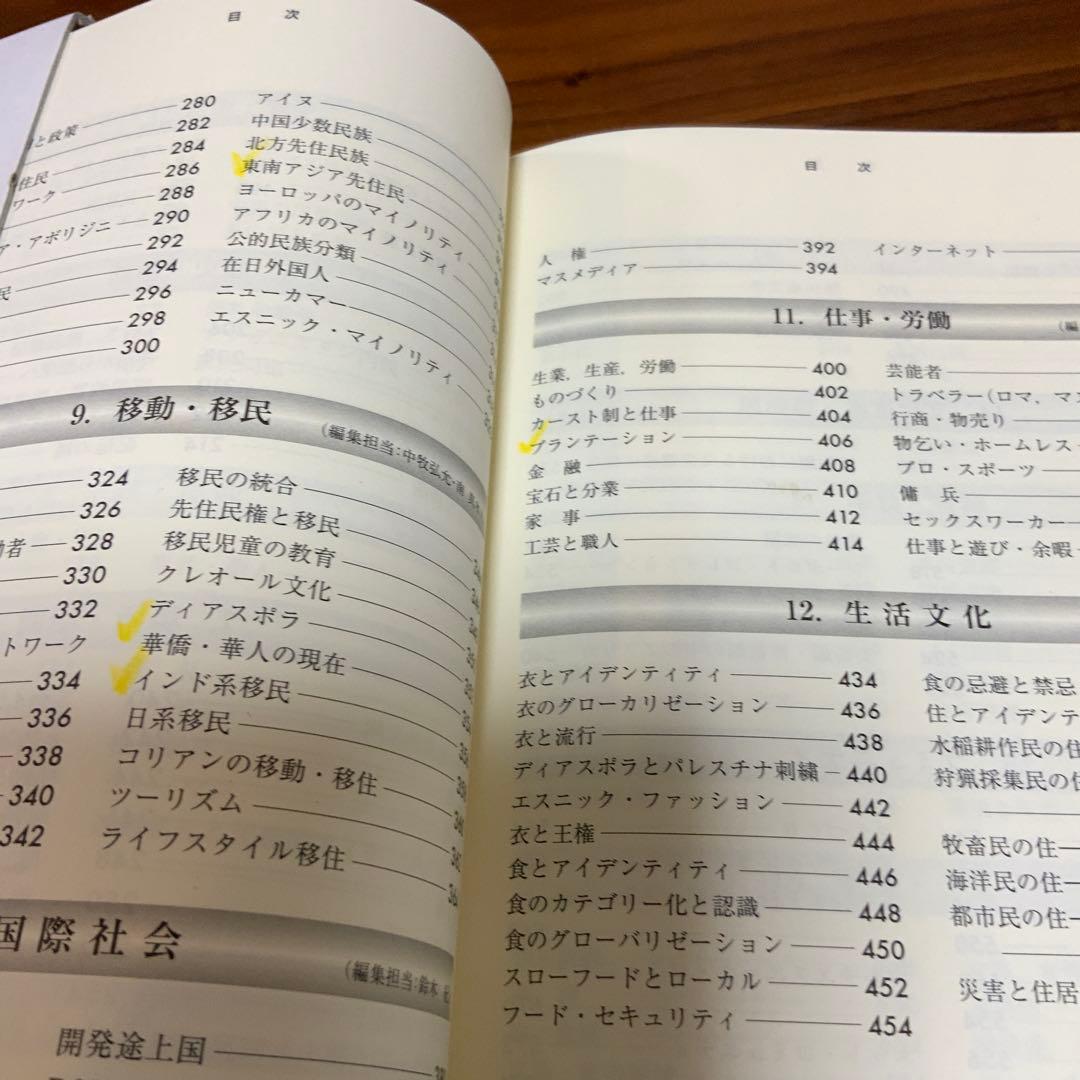 目 次
280
と政策 282
284
住民 286
ワーク 288
ア・アボリジニ 290
292
民 294
296
298
300
アイヌ
中国少数民族
北方先住民族
東南アジア先住民
ヨーロッパのマイノリティ
アフリカのマイノリティ
公的民族分類
在日外国人
ニューカマー
エスニック・マイノリティ
9. 移動・移民
(編集担当:中牧弘允・南
324
326
働者 328
330
332
トワーク
334
336
338
340
342
移民の統合
先住民権と移民
移民児童の教育
クレオール文化
ディアスポラ
華僑・華人の現在
インド系移民
日系移民
コリアンの移動・移住
ツーリズム
ライフスタイル移住
国際社会
(編集担当:鈴木
開発途上国
目 次
人 権 392
マスメディア 394
インターネット
11. 仕事・労働
(編
生業,生産,労働 400
ものづくり 402
カースト制と仕事 404
プランテーション 406
金 融 408
宝石と分業 410
家 事 412
工芸と職人 414
芸能者
トラベラー(ロマ,マヌ
行商・物売り
物乞い・ホームレス
プロ・スポーツ
傭 兵
セックスワーカー
仕事と遊び・余暇
12. 生活文化
衣とアイデンティティ 434
衣のグローカリゼーション 436
衣と流行 438
ディアスポラとパレスチナ刺繍 440
エスニック・ファッション 442
衣と王権 444
食とアイデンティティ 446
食のカテゴリー化と認識 448
食のグローバリゼーション 450
スローフードとローカル 452
フード・セキュリティ 454
食の忌避と禁忌
住とアイデンテ
水稲耕作民の住
狩猟採集民の住
牧畜民の住
海洋民の住
都市民の住
災害と住居